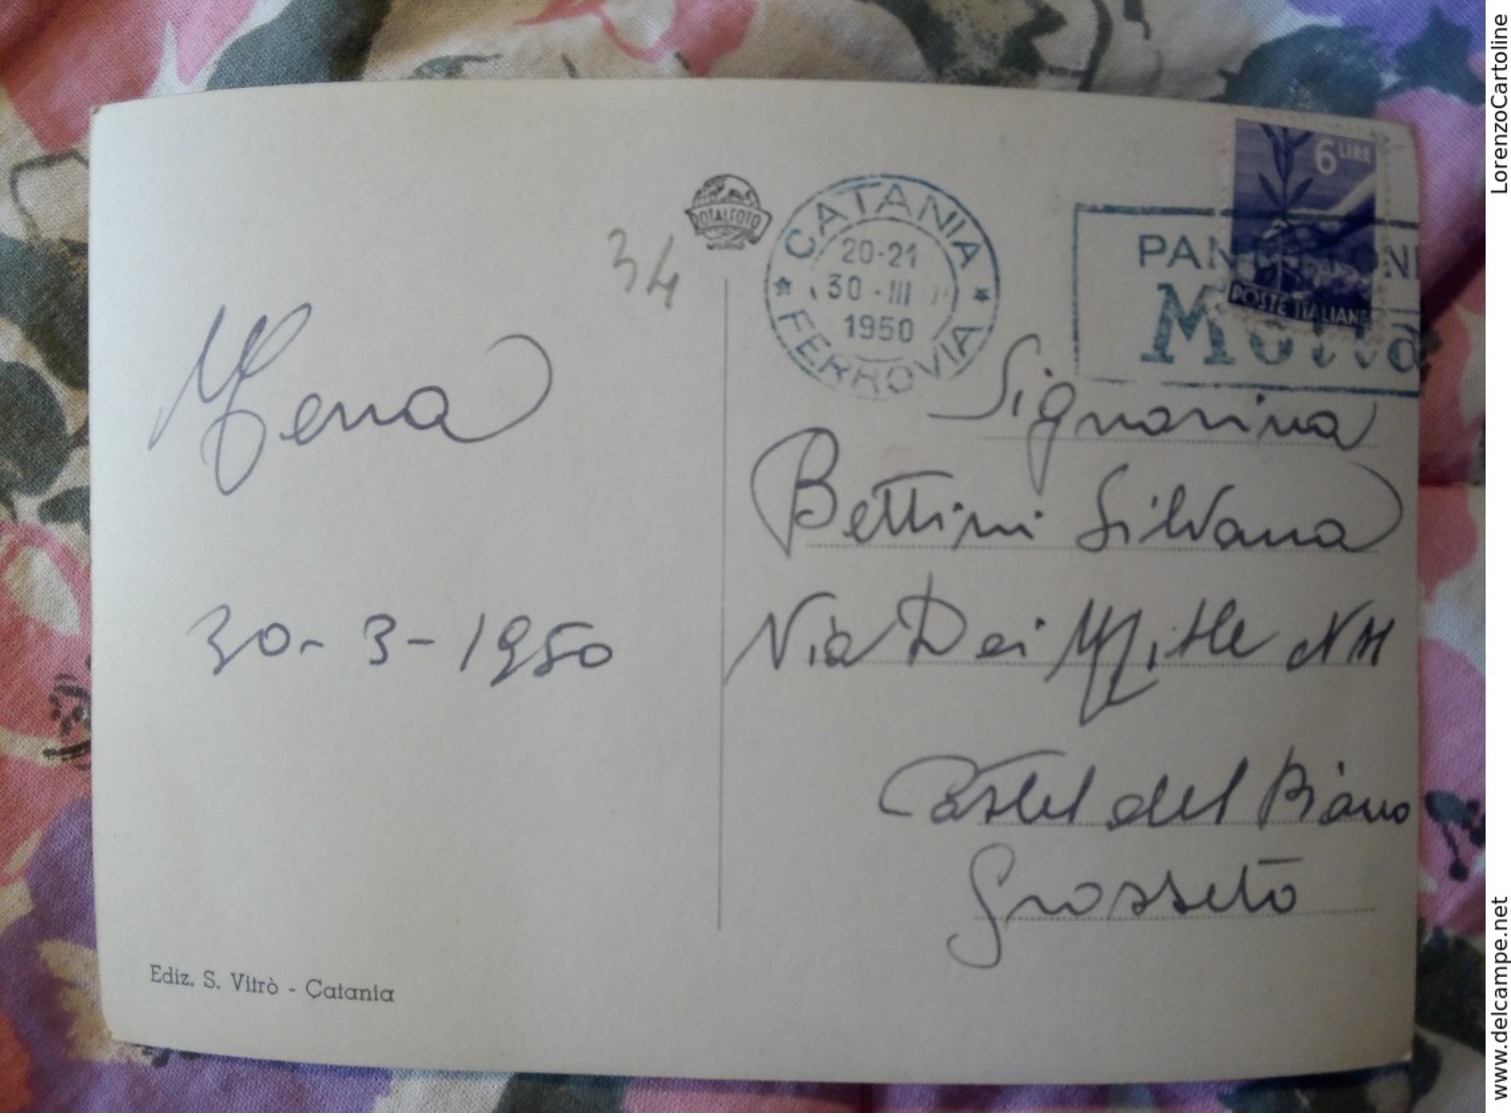 34
ROTALFOTO
CATANIA
20-21
30-III
1950
FERROVIA
6 LIRE
POSTE ITALIANE
PANETTONI
Motta
Mena
30-3-1950
Signorina
Bettini Silvana
Via Dei Mille
Castel del Piano
Grosseto
Ediz. S. Vitrò - Catania
LorenzoCartoline
www.delcampe.net